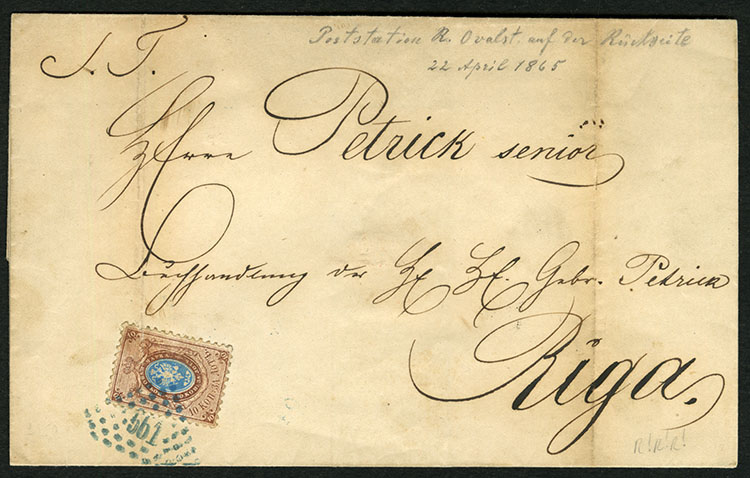 Poststation R. Ovalst. auf der Rückseite
22 April 1865
S. T.
Herrn Petrick senior
Buchhandlung der H. H. Gebr. Petrick
Riga.
10 КОП.
561
R!R!R!